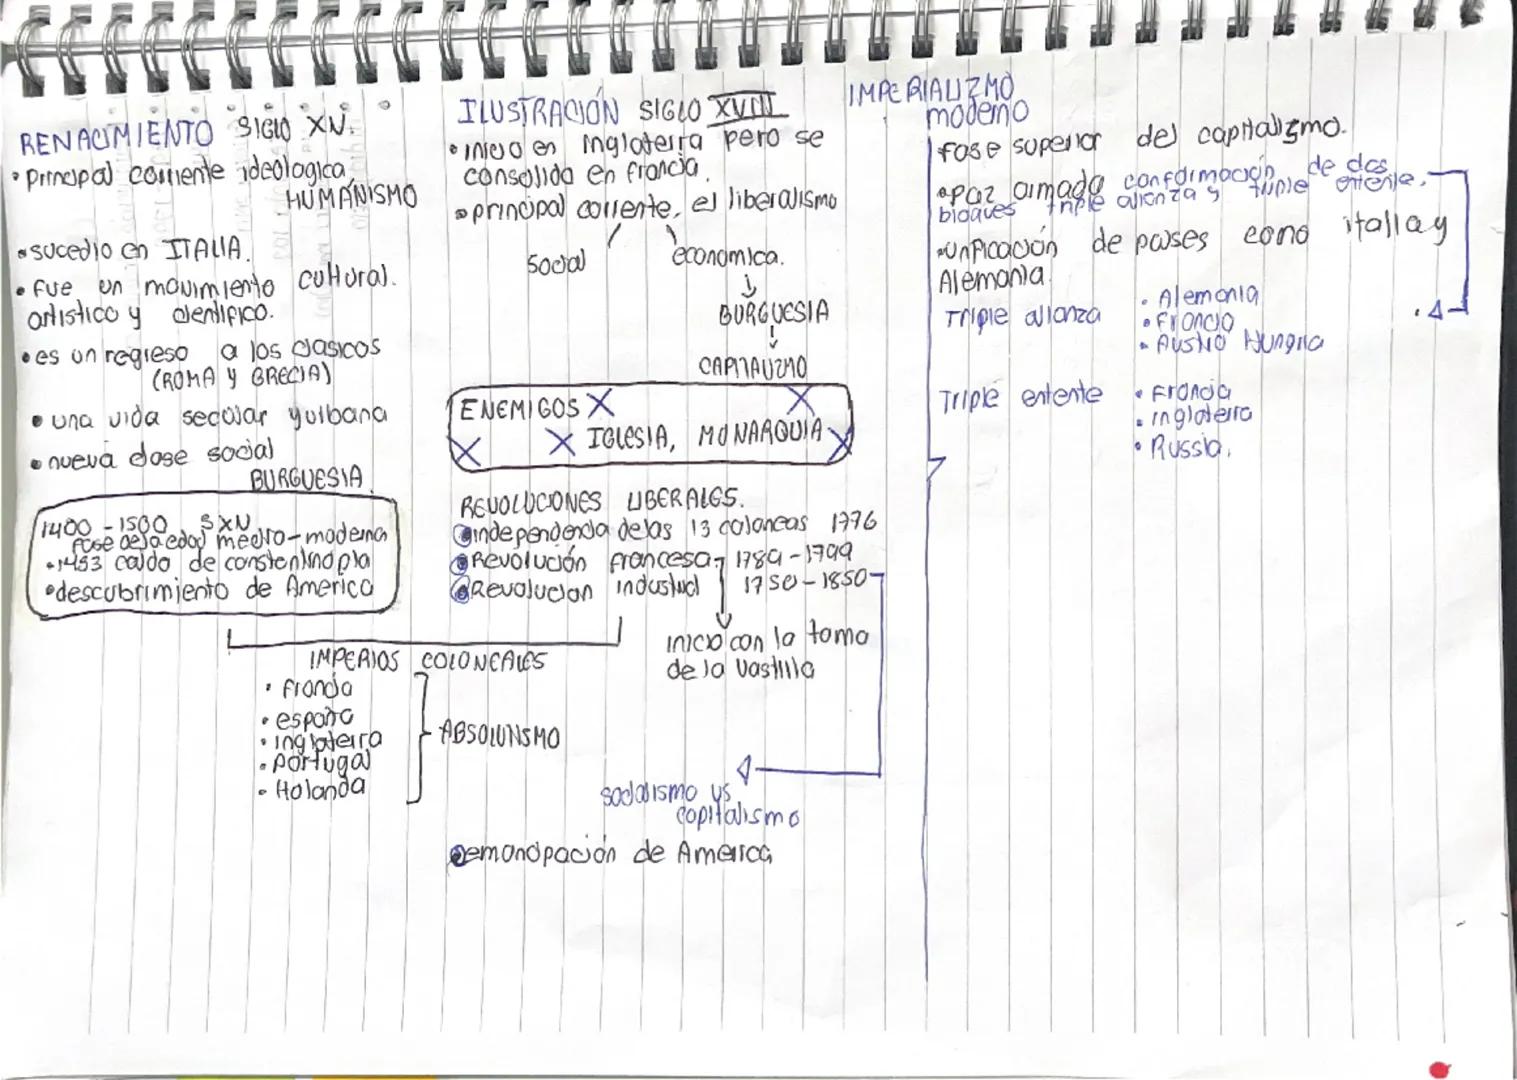 RENACIMIENTO SIGLO XV.
• Principal corriente ideologica,
HUMANISMO
• sucedio en ITALIA.
• fue un movimiento cultural.
artistico y cientifico.
• es un regreso a los clasicos
(ROMA y GRECIA)
• una vida secular y urbana
• nueva clase social
BURGUESIA
1400 - 1500 SXV
fase de la edad medio-moderna
• 1453 caida de constantinopla
• descubrimiento de America
ILUSTRACIÓN SIGLO XVIII
• inicio en inglaterra pero se
consolida en francia.
• principal corriente, el liberalismo
social economica.
BURGUESIA
CAPITALIZMO
ENEMIGOS
IGLESIA, MONARQUIA
REVOLUCIONES LIBERALES.
independencia de las 13 coloneas 1776
Revolución francesa 1789-1799
Revolucion industrial 1750-1850
inicio con la toma
de la vastilla
IMPERIOS COLONEALES
• francia
• españa
• inglaterra
• portugal
• Holanda
ABSOLUTISMO
socialismo vs
capitalismo
emancipación de America
IMPERIALIZMO
moderno
fase superior del capitalizmo.
• paz armada conformación de dos
bloques triple alianza y triple entente.
• unificación de paises como italia y
Alemania.
Triple alianza
• Alemania
• Francia
• Austro Hungria
Triple entente
• Francia
• inglaterra
• Russia.